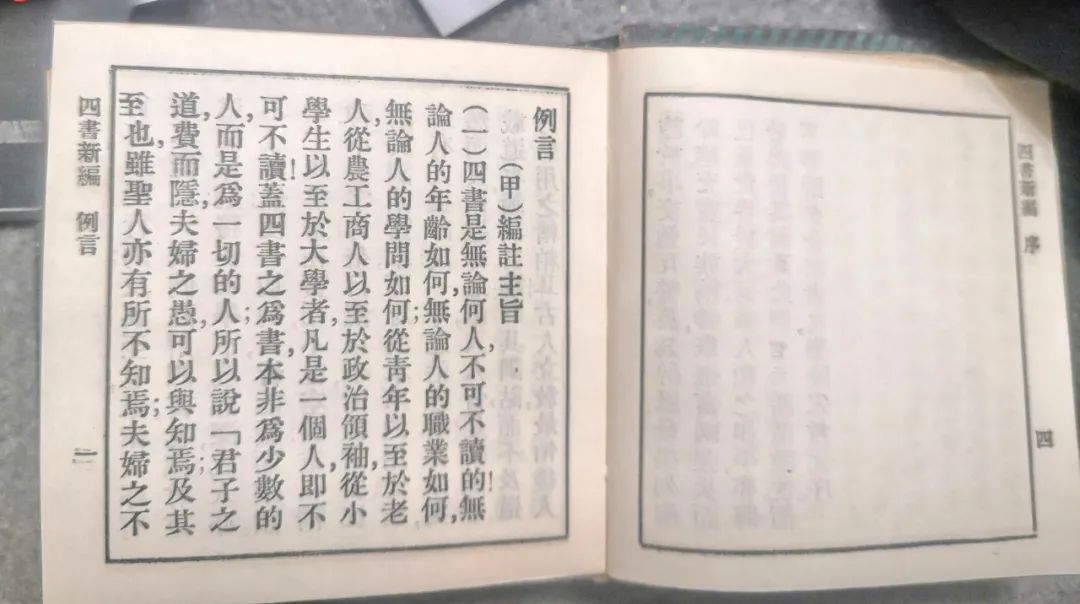 四書新編　序
四
例言
（甲）編註主旨
（一）四書是無論何人，不可不讀的！無
論人的年齡如何，無論人的職業如何，
無論人的學問如何；從青年以至於老
人，從農工商人以至於政治領袖，從小
學生以至於大學者，凡是一個人，即不
可不讀！蓋四書之爲書，本非爲少數的
人，而是爲一切的人；所以說「君子之
道，費而隱，夫婦之愚，可以與知焉；及其
至也，雖聖人亦有所不知焉；夫婦之不
四書新編　例言
一